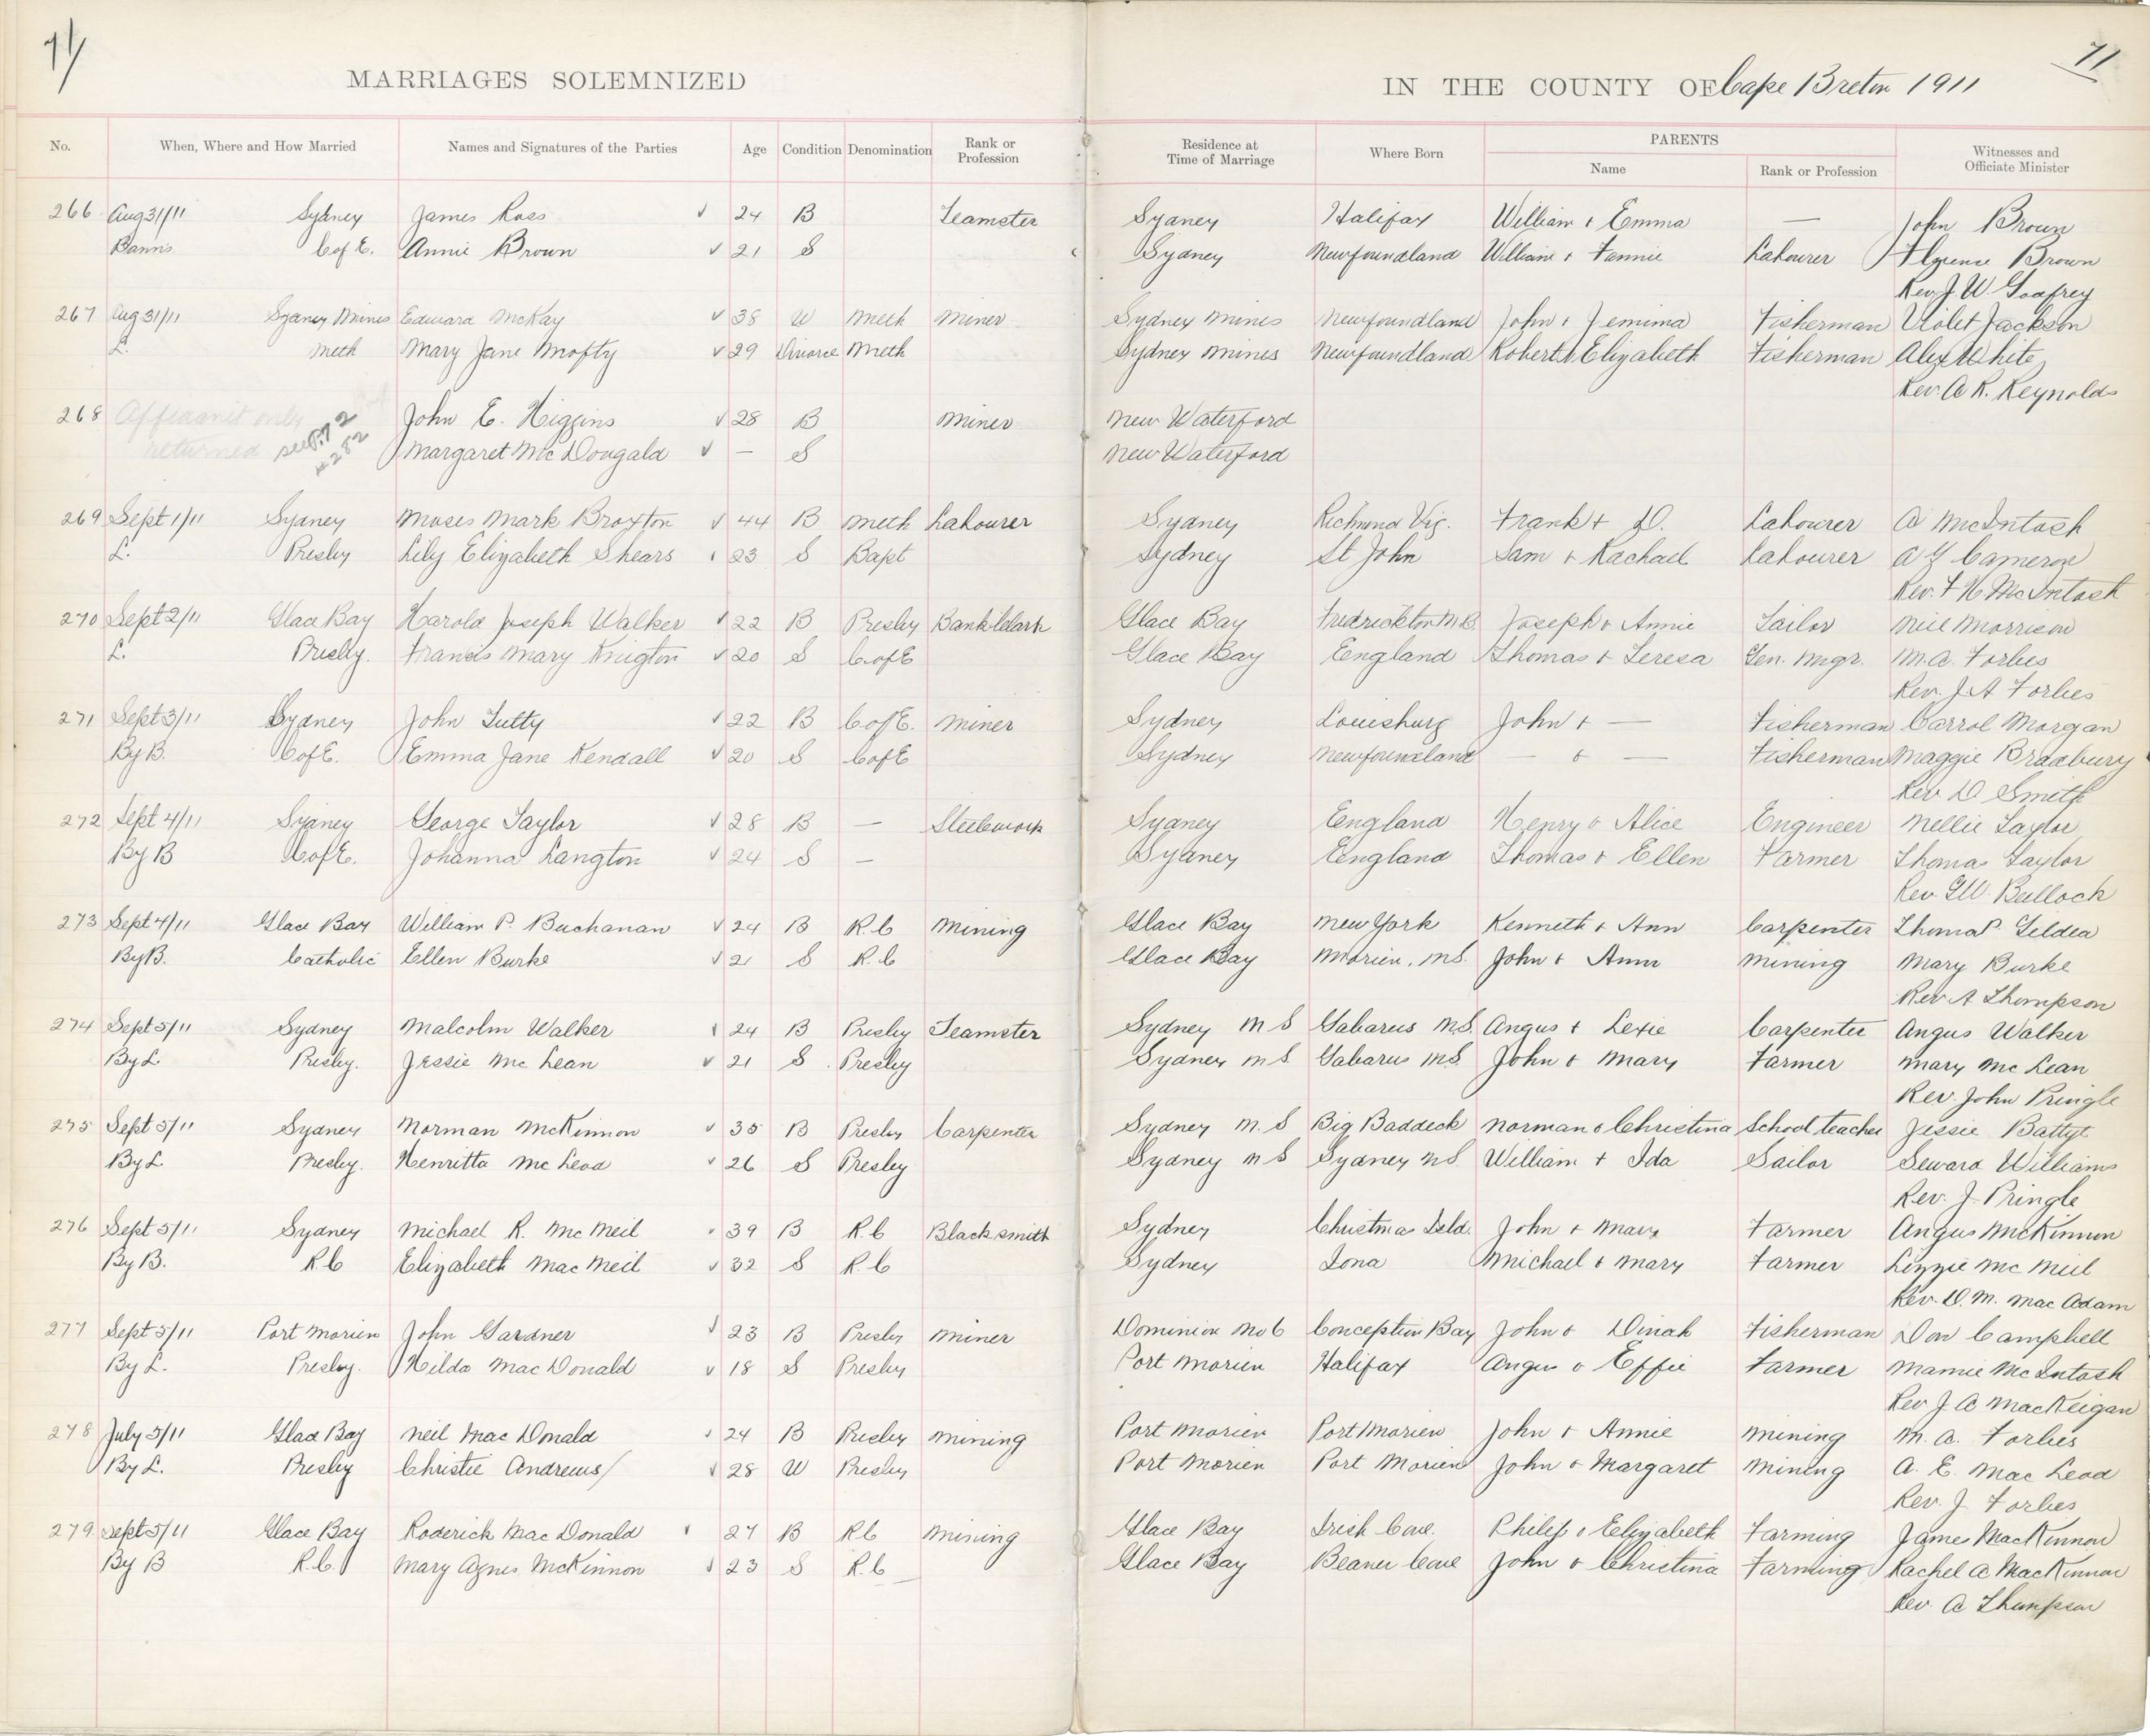 71
71
MARRIAGES SOLEMNIZED IN THE COUNTY OF Cape Breton 1911
No. When, Where and How Married Names and Signatures of the Parties Age Condition Denomination Rank or Profession Residence at Time of Marriage Where Born PARENTS Name Rank or Profession Witnesses and Officiate Minister
266 Aug 31/11 Sydney James Ross 24 B Teamster Sydney Halifax William + Emma — John Brown
Banns C of E. Annie Brown 21 S Sydney Newfoundland William + Fannie Labourer Florence Brown
Rev. J. W. Godfrey
267 Aug 31/11 Sydney Mines Edward McKay 38 W Meth Miner Sydney Mines Newfoundland John + Jemima Fisherman Violet Jackson
L. Meth Mary Jane Mofty 29 Divorce Meth Sydney Mines Newfoundland Robert + Elizabeth Fisherman Alex White
Rev. A. R. Reynolds
268 Affidavit only John E. Higgins 28 B Miner New Waterford
returned see P. 72 #282 Margaret McDougald — S New Waterford
269 Sept 1/11 Sydney Moses Mark Broxton 44 B Meth Labourer Sydney Richmond Vig. Frank + D. Labourer A McIntosh
L. Presby Lily Elizabeth Shears 23 S Bapt Sydney St John Sam + Rachael Labourer A Y Cameron
Rev. F H McIntosh
270 Sept 2/11 Glace Bay Harold Joseph Walker 22 B Presby Bank Clark Glace Bay Fredrickton N.B. Joseph + Annie Tailor Neil Morrison
L. Presby. Francis Mary Knigton 20 S C of E Glace Bay England Thomas + Teresa Gen. Mgr. M. A. Forbes
Rev. J. A Forbes
271 Sept 3/11 Sydney John Tutty 22 B C of E. Miner Sydney Louisburg John + — Fisherman Carrol Morgan
By B. C of E. Emma Jane Kendall 20 S C of E Sydney Newfoundland — + — Fisherman Maggie Bradbury
Rev D Smith
272 Sept 4/11 Sydney George Taylor 28 B — Steelwork Sydney England Henry + Alice Engineer Nellie Taylor
By B C of E. Johanna Langton 24 S — Sydney England Thomas + Ellen Farmer Thomas Taylor
Rev G W. Bullock
273 Sept 4/11 Glace Bay William P. Buchanan 24 B R. C Mining Glace Bay New York Kenneth + Ann Carpenter Thomas P Gildea
By B. Catholic Ellen Burke 21 S R. C Glace Bay Morien, N.S. John + Ann Mining Mary Burke
Rev A Thompson
274 Sept 5/11 Sydney Malcolm Walker 24 B Presby Teamster Sydney N S Gabarus N.S. Angus + Lexie Carpenter Angus Walker
By L Presby. Jessie McLean 21 S Presby Sydney N S Gabarus N.S. John + Mary Farmer Mary McLean
Rev. John Pringle
275 Sept 5/11 Sydney Norman McKinnon 35 B Presby Carpenter Sydney N. S Big Baddeck Norman + Christina School teacher Jessie Battye
By L. Presby. Henritta McLeod 26 S Presby Sydney N S Sydney N S. William + Ida Sailor Seward Williams
Rev. J. Pringle
276 Sept 5/11 Sydney Michael R. McNeil 39 B R. C Blacksmith Sydney Christmas Isld. John + Mary Farmer Angus McKinnon
By B. R. C Elizabeth MacNeil 32 S R. C Sydney Iona Michael + Mary Farmer Lizzie McNeil
Rev. D. M. MacAdam
277 Sept 5/11 Port Morien John Gardner 23 B Presby Miner Dominion No 6 Conception Bay John + Dinah Fisherman Dan Campbell
By L. Presby. Hilda MacDonald 18 S Presby Port Morien Halifax Angus + Effie Farmer Mamie McIntosh
Rev J. A MacKeigan
278 July 5/11 Glace Bay Neil MacDonald 24 B Presby Mining Port Morien Port Morien John + Annie Mining M. A. Forbes
By L. Presby Christie Andrews 28 W Presby Port Morien Port Morien John + Margaret Mining A. E. MacLeod
Rev. J. Forbes
279 Sept 5/11 Glace Bay Roderick MacDonald 27 B R. C Mining Glace Bay Irish Cove. Philip + Elizabeth Farming James MacKinnon
By B R. C. Mary Agnes McKinnon 23 S R. C Glace Bay Beaver Cove John + Christina Farming Rachel A MacKinnon
Rev. A Thompson